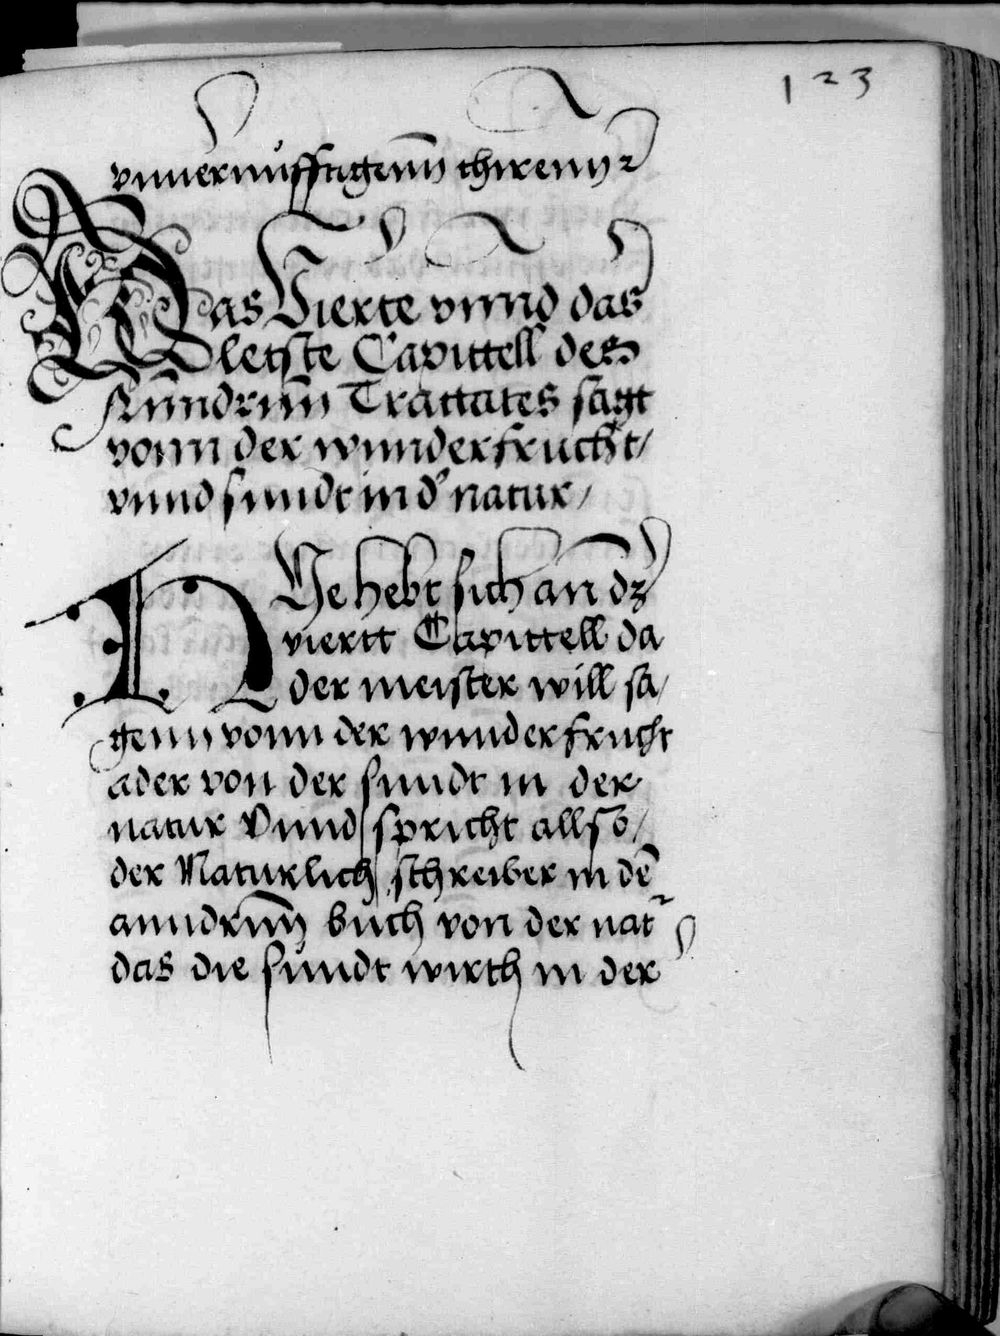 123
vnuernŭfftigenn thirenn
Das Vierte vnnd das
letste Capittell des
Anndrnn Tractates sagt
vonn der wunderfrucht/
vnnd sundt in d' natur/
Hye hebt sich an dz
viertt Capittell da
der meister will sa/
genn vonn der wunderfrucht
ader von der sundt in der
natur Vnnd spricht allso/
der Naturlich schreiber in dē
anndrnn buch von der nat
das die sŭndt wirth in der